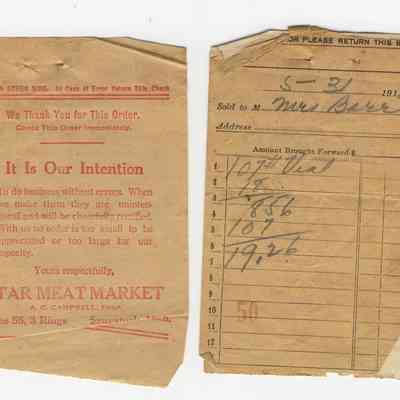 OTHER SIDE. In Case of Error Return This Check
We Thank You for This Order.
Count This Order Immediately.
It Is Our Intention
To do business without errors. When
we make them they are uninten-
tional and will be cheerfully rectified.
With us no order is too small to be
appreciated or too large for our
capacity.
Yours respectfully,
STAR MEAT MARKET
A. C. CAMPBELL, Prop.
55, 3 Rings
OR PLEASE RETURN THIS B
5-31 191
Sold to M Mrs Barr
Address
Amount Brought Forward
1 107# Veal
2 18
3 856
4 107
5 19,26
6
7
8
9
10 50
11
12